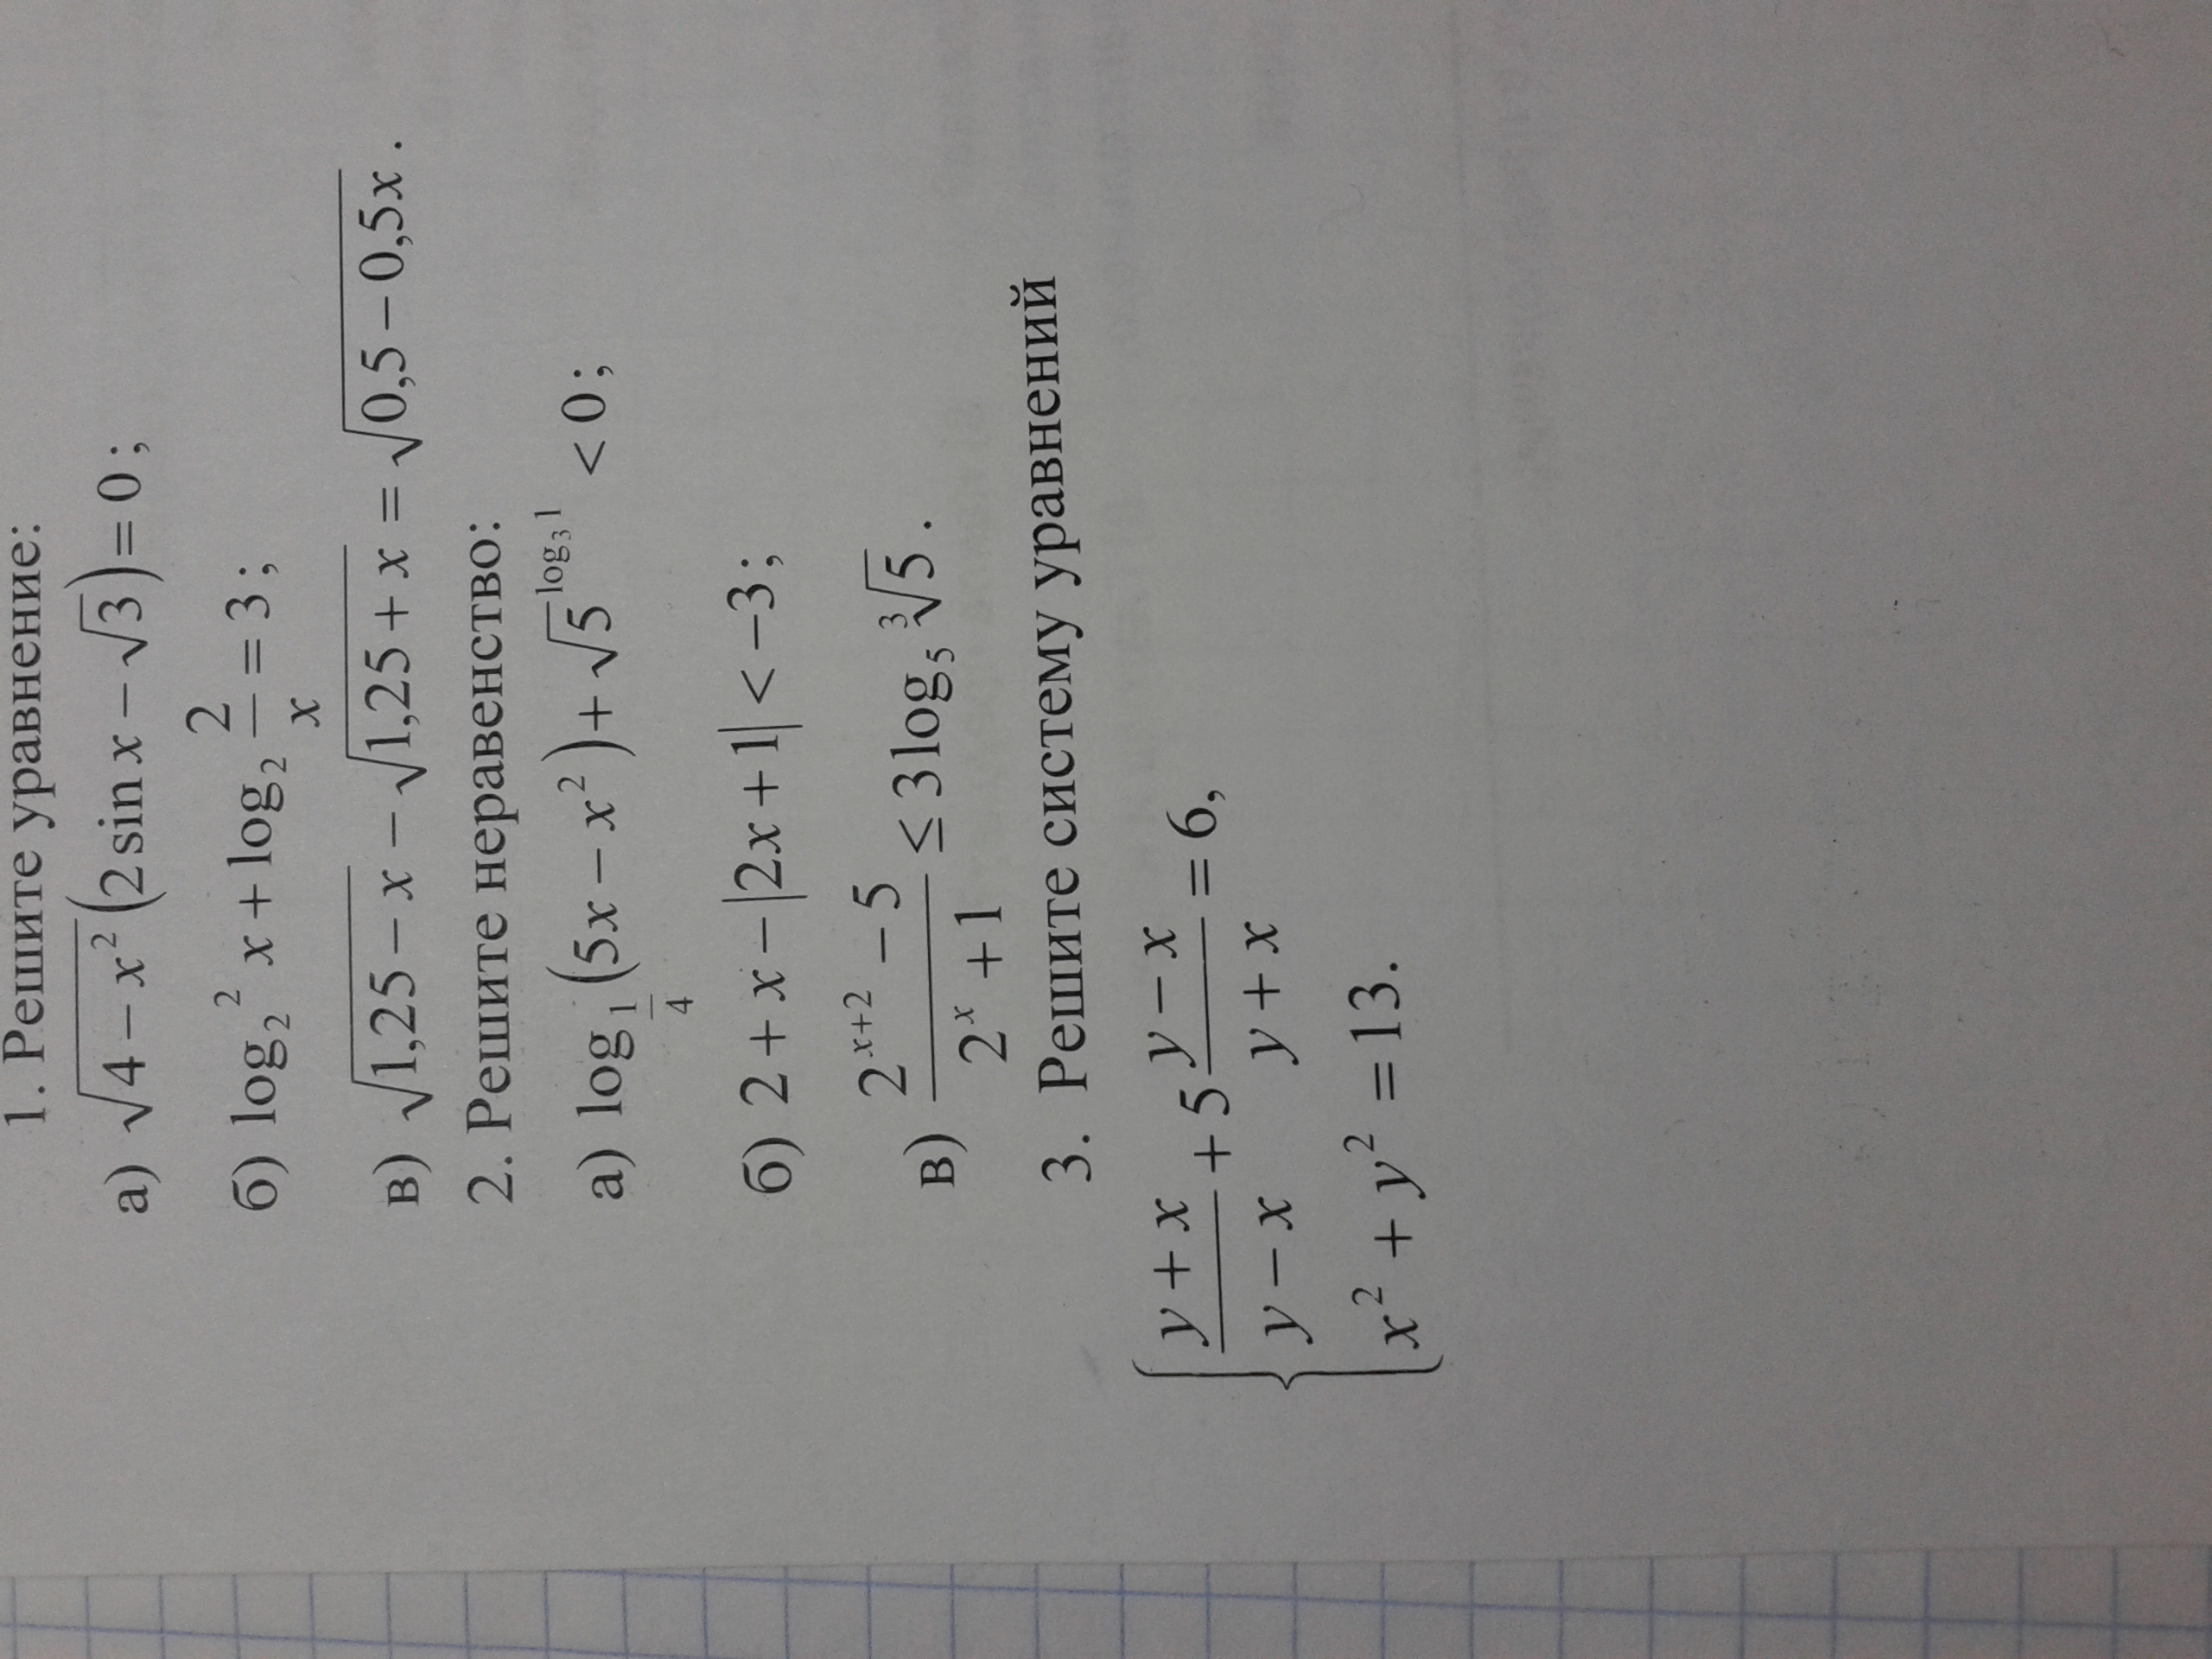 1. Решите уравнение:
а) √(4 − x²) (2 sin x − √3) = 0;
б) log₂² x + log₂ 2/x = 3;
в) √(1,25 − x) − √(1,25 + x) = √(0,5 − 0,5x).
2. Решите неравенство:
а) log_{1/4} (5x − x²) + √5^{log₃ 1} < 0;
б) 2 + x − |2x + 1| < −3;
в) (2^{x+2} − 5)/(2^x + 1) ≤ 3 log₅ ∛5.
3. Решите систему уравнений
{ (y + x)/(y − x) + 5 (y − x)/(y + x) = 6,
x² + y² = 13.